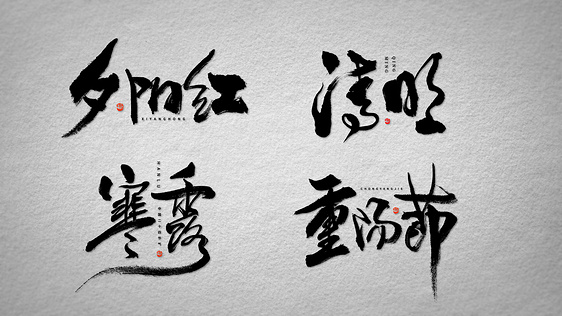 夕阳红
XIYANGHONG
清明
QING
MING
寒露
HANLU
重阳节
CHONGYANGJIE